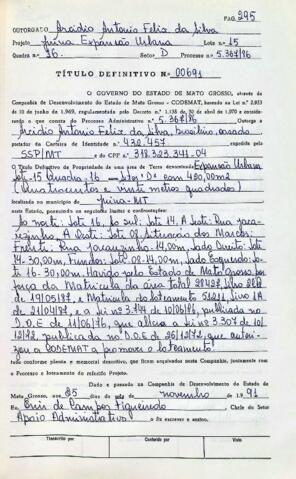 PAG. 295
OUTORGADO Arcidio Antonio Felix da Silva
Projeto Juina Expansão Urbana Lote n.º 15
Quadra n.º 16 Setor D Processo n.º 5.367/86
TÍTULO DEFINITIVO N.º 00691
O GOVERNO DO ESTADO DE MATO GROSSO, através da
Companhia de Desenvolvimento do Estado de Mato Grosso - CODEMAT, baseado na Lei n.º 2.933
de 10 de junho de 1969, regulamentada pelo Decreto n.º 1.138 de 30 de abril de 1970 e considerando
o que consta do Processo Administrativo n.º 5.367/86 Outorga a
Arcidio Antonio Felix da Silva, brasileiro, casado
portador da Carteira de Identidade n.º 432.457 expedida pela
SSP/MT e do CPF n.º 318.323.341-04
O Título Definitivo de Propriedade de uma área de Terra denominada Expansão Urbana
Lote-15 Quadra 16 - Setor "D" com 420,00m2
(Quatrocentos e vinte metros quadrados)
localizada no município de Juina-MT
neste Estado, possuindo os seguintes limites e confrontações:
Ao norte: Lote 16, Ao sul: Lote 14, A Leste: Rua
A Oeste: Lote 08. Situação dos Marcos:
Frente: Rua 14,00m, Lado Direito: Lote
14-30,00m, Fundos: Lote 08-14,00m, Lado Esquerdo: Lo-
te 16-30,00m. Havido pelo Estado de Mato Grosso por
força da Matrícula da área total
19/05/87, e Matrícula do loteamento Livro 2A
de 21/04/87, e a Lei nº 3.744 de 10/06/76, publicada no
D.O.E de 11/06/76, que altera a Lei nº 3.307 de 18/
12/72, publicada no D.O.E de 26/12/72, que autori-
zou a CODEMAT a promover o loteamento.
tudo conforme planta e memorial descritivo, que ficam arquivados nesta Companhia, juntamente com
o Processo e loteamento do referido Projeto.
Dado e passado na Companhia de Desenvolvimento do Estado de
Mato Grosso, aos 25 dias do mês de novembro de 1991
Eu, Enir de Campos Figueiredo, Chefe do Setor
Apoio Administrativo o fiz escrever e assino.
Transcrito por Conferido por Visto